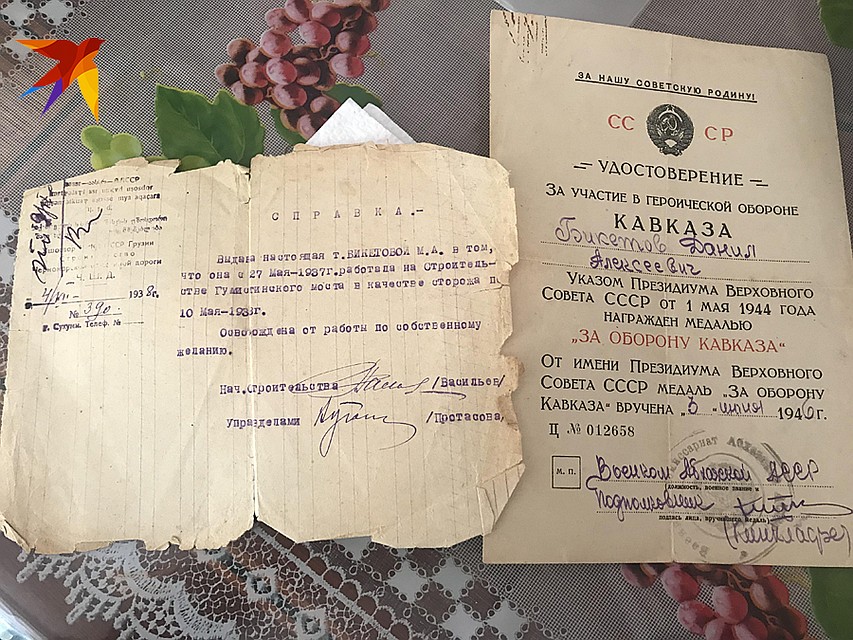 АССР
Грузии
дороги
Ч. Ш. Д.
1938 г.
№ 390
г. Сухуми. Телеф. №
СПРАВКА.-
Выдана настоящая т.БИКЕТОВОЙ М.А. в том,
что она с 27 Мая-1937г.работала на Строитель-
стве Гумистинского моста в качестве сторожа п
10 Мая-1938г.
Освобождена от работы по собственному
желанию.
Нач.Строительства /Васильев/
Управделами /Протасова/
ЗА НАШУ СОВЕТСКУЮ РОДИНУ!
СС СР
УДОСТОВЕРЕНИЕ
ЗА УЧАСТИЕ В ГЕРОИЧЕСКОЙ ОБОРОНЕ
КАВКАЗА
Бикетов Данил
Алексеевич
УКАЗОМ ПРЕЗИДИУМА ВЕРХОВНОГО
СОВЕТА СССР ОТ 1 МАЯ 1944 ГОДА
НАГРАЖДЕН МЕДАЛЬЮ
„ЗА ОБОРОНУ КАВКАЗА"
ОТ ИМЕНИ ПРЕЗИДИУМА ВЕРХОВНОГО
СОВЕТА СССР МЕДАЛЬ „ЗА ОБОРОНУ
КАВКАЗА" ВРУЧЕНА „3 июня 1946г.
Ц № 012658
М. П.
Военком Абхазской АССР
должность, военное звание и
Подполковник
подпись лица, вручившего медаль)